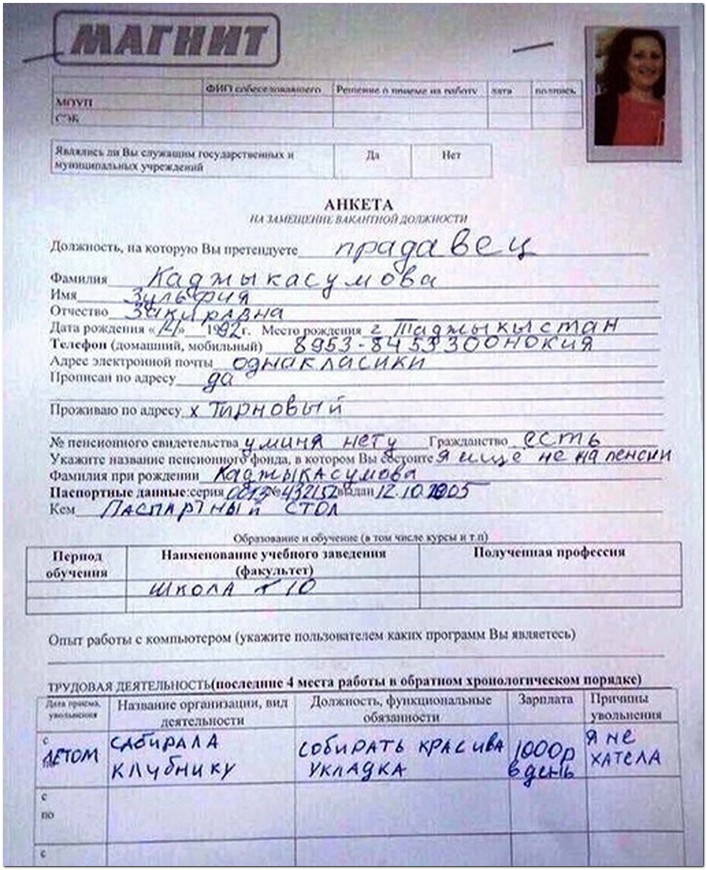 МАГНИТ
ФИО собеседовавшего Решение о приеме на работу дата подпись
МОУП
СЭБ
Являлись ли Вы служащим государственных и муниципальных учреждений Да Нет
АНКЕТА
НА ЗАМЕЩЕНИЕ ВАКАНТНОЙ ДОЛЖНОСТИ
Должность, на которую Вы претендуете прадавец
Фамилия Каджыкасумова
Имя Зульфия
Отчество Закиравна
Дата рождения «14» 1992г. Место рождения г Таджыкыстан
Телефон (домашний, мобильный) 8953-8453300нокия
Адрес электронной почты однакласики
Прописан по адресу да
Проживаю по адресу х Тирновый
№ пенсионного свидетельства у миня нету Гражданство есть
Укажите название пенсионного фонда, в котором Вы состоите я ище не на пенсии
Фамилия при рождении Каджыкасумова
Паспортные данные:серия № 432152 выдан 12.10.2005
Кем Паспартный стол
Образование и обучение (в том числе курсы и т.п)
Период обучения Наименование учебного заведения (факультет) Полученная профессия
школа 10
Опыт работы с компьютером (укажите пользователем каких программ Вы являетесь)
ТРУДОВАЯ ДЕЯТЕЛЬНОСТЬ(последние 4 места работы в обратном хронологическом порядке)
Дата приема, увольнения Название организации, вид деятельности Должность, функциональные обязанности Зарплата Причины увольнения
с летом сабирала клубнику собирать красива укладка 1000р в день я не хатела
с
по
с